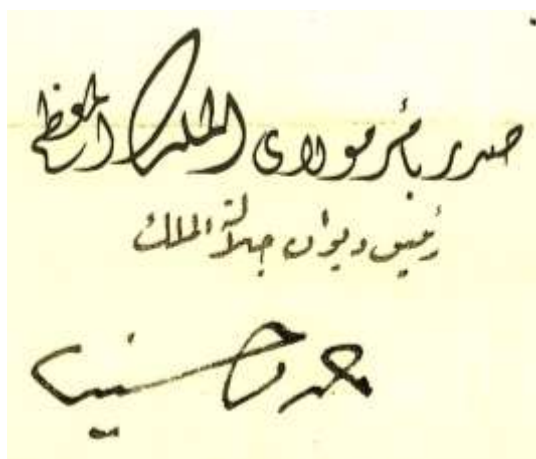 صدر بأمر مولاى الملك المعظم
رئيس ديوان جلالة الملك
أحمد حسنين